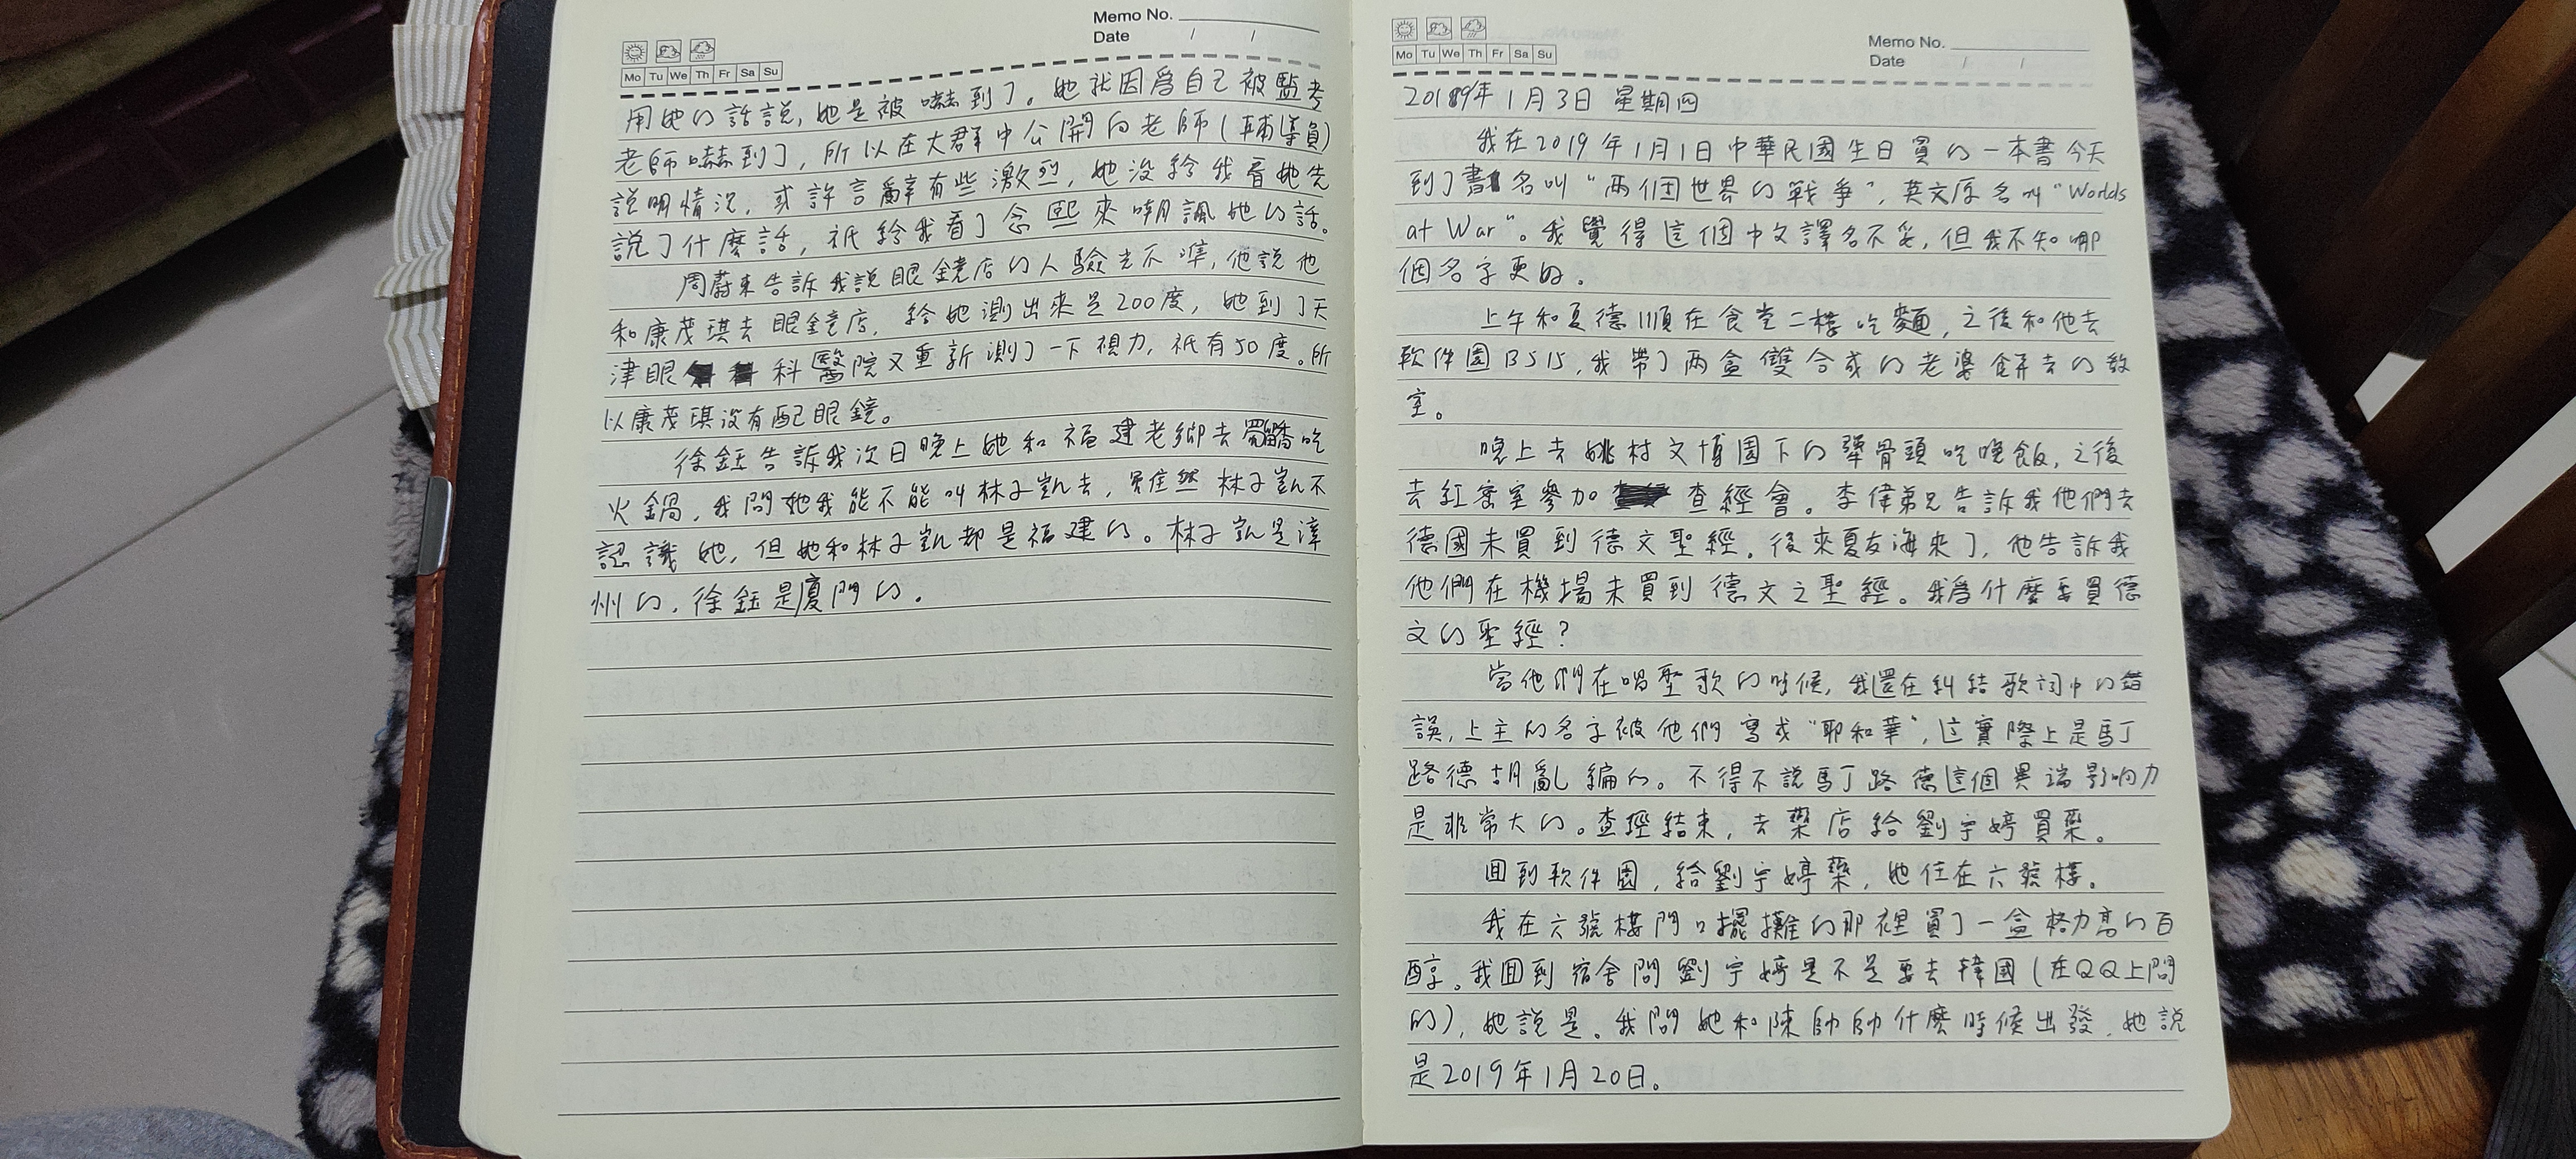 Memo No.
Date / /
Mo Tu We Th Fr Sa Su
用她的話說，她是被嚇到了。她就因爲自己被監考
老師嚇到了，所以在大群中公開向老師（輔導員）
說明情況，或許言辭有些激烈，她没給我看她先
說了什麼話，祇給我看了念熙來嘲諷她的話。
周蔚来告訴我說眼鏡店的人驗光不準，他說他
和康茂琪去眼鏡店，給她測出來是200度，她到了天
津眼科醫院又重新測了一下視力，祇有50度。所
以康茂琪没有配眼鏡。
徐鈺告訴我次日晚上她和福建老鄉去吃
火鍋，我問她我能不能叫林子凱去，雖然林子凱不
認識她，但她和林子凱都是福建的。林子凱是漳
州的，徐鈺是廈門的。
Memo No.
Date / /
Mo Tu We Th Fr Sa Su
2019年1月3日 星期四
我在2019年1月1日中華民國生日買的一本書今天
到了書名叫“兩個世界的戰爭”，英文原名叫“Worlds
at War”。我覺得這個中文譯名不妥，但我不知哪
個名字更好。
上午和夏德順在食堂二樓吃麵，之後和他去
軟件園B515，我帶了兩盒雙合成的老婆餅去的教
室。
晚上去姚村文博園下的犟骨頭吃晚飯，之後
去紅密室參加查經會。李偉弟兄告訴我他們去
德國未買到德文聖經。後來夏友海來了，他告訴我
他們在機場未買到德文之聖經。我爲什麼要買德
文的聖經？
當他們在唱聖歌的時候，我還在糾結歌詞中的錯
誤，上主的名字被他們寫成“耶和華”，這實際上是馬丁
路德胡亂編的。不得不說馬丁路德這個異端影响力
是非常大的。查經結束，去藥店給劉宇婷買藥。
回到軟件園，給劉宇婷藥，她住在六號樓。
我在六號樓門口擺攤的那裡買了一盒格力高的百
醇。我回到宿舍問劉宇婷是不是要去韓國（在QQ上問
的），她說是。我問她和陳帥帥什麼時候出發，她說
是2019年1月20日。